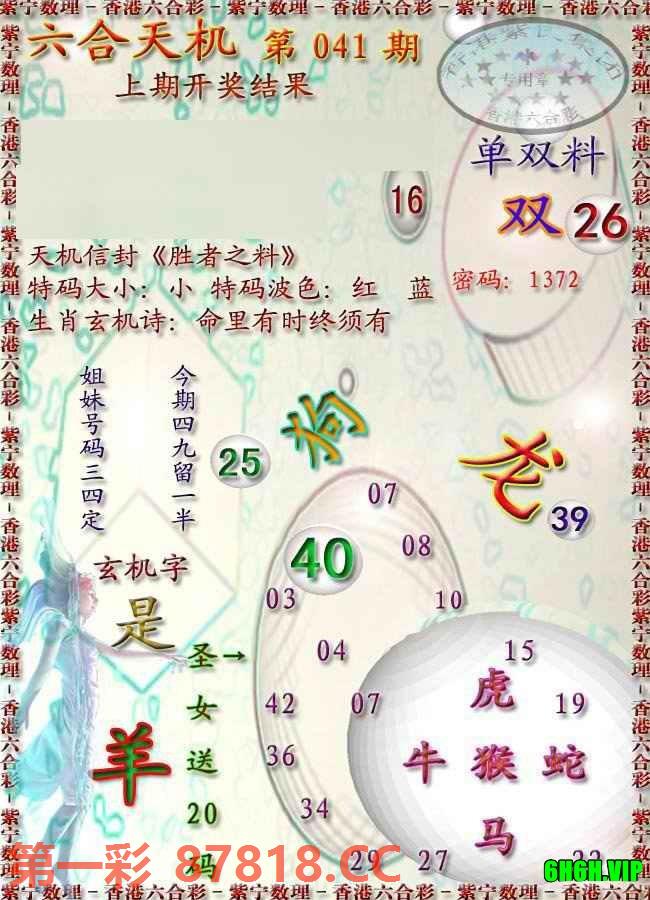 紫宁数理－香港六合彩－紫宁数理－香港六合彩－紫宁数理－香港六合彩
六合天机 第 041 期
上期开奖结果
专用章
香港六合彩
单双料
16
双 26
天机信封《胜者之料》
特码大小：小 特码波色：红 蓝
密码：1372
生肖玄机诗：命里有时终须有
今期四九留一半
姐妹号码三四定
25
狗
龙
39
07
40
08
03
10
玄机字
是
04
15
圣→
女
送
20
码
羊
42
07
虎
19
36
牛 猴 蛇
34
马
29
27
第一彩 87818.CC
6H6H.VIP
紫宁数理－香港六合彩－紫宁数理－香港六合彩－紫宁数理－香港六合彩